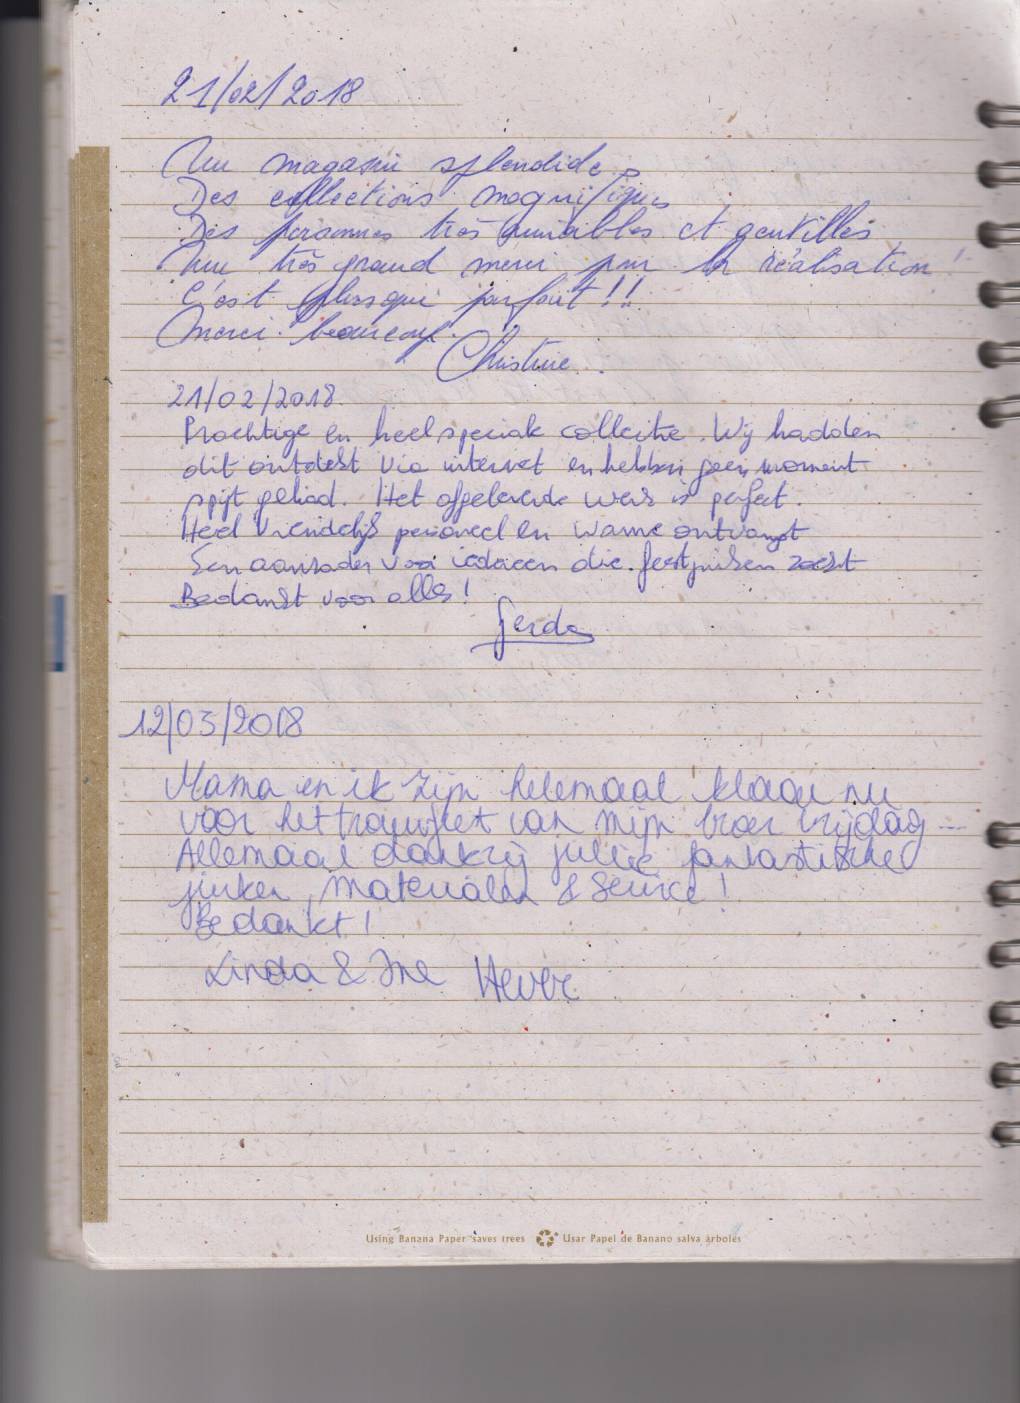 21/02/2018
Un magasin splendide.
Des collections magnifiques
Des personnes très aimables et gentilles
Un très grand merci pour la réalisation!
C'est plus que parfait!!
Merci beaucoup.
Christine.
21/02/2018
Prachtige en heel speciale collectie. Wij hadden
dit ontdekt via internet en hebben geen moment
spijt gehad. Het afgeleverde werk is perfect.
Heel vriendelijk personeel en warme ontvangst
Een aanrader voor iedereen die feestjurken zoekt
Bedankt voor alles!
Gerda
12/03/2018
Mama en ik zijn helemaal klaar nu
voor het trouwfeest van mijn broer vrijdag...
Allemaal dankzij jullie fantastische
jurken, materialen & service!
Bedankt!
Linda & Ine
Using Banana Paper saves trees Usar Papel de Banano salva árboles